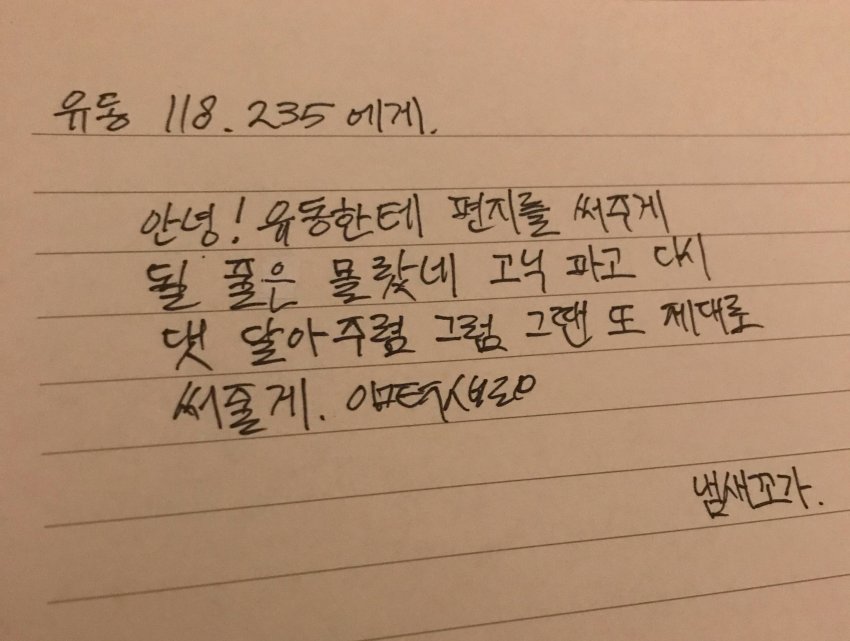 유동 118.235 에게.
안녕! 유동한테 편지를 써주게
될 줄은 몰랐네 고닉 파고 다시
댓 달아주렴 그럼 그땐 또 제대로
써줄게.
냄새꼬가.